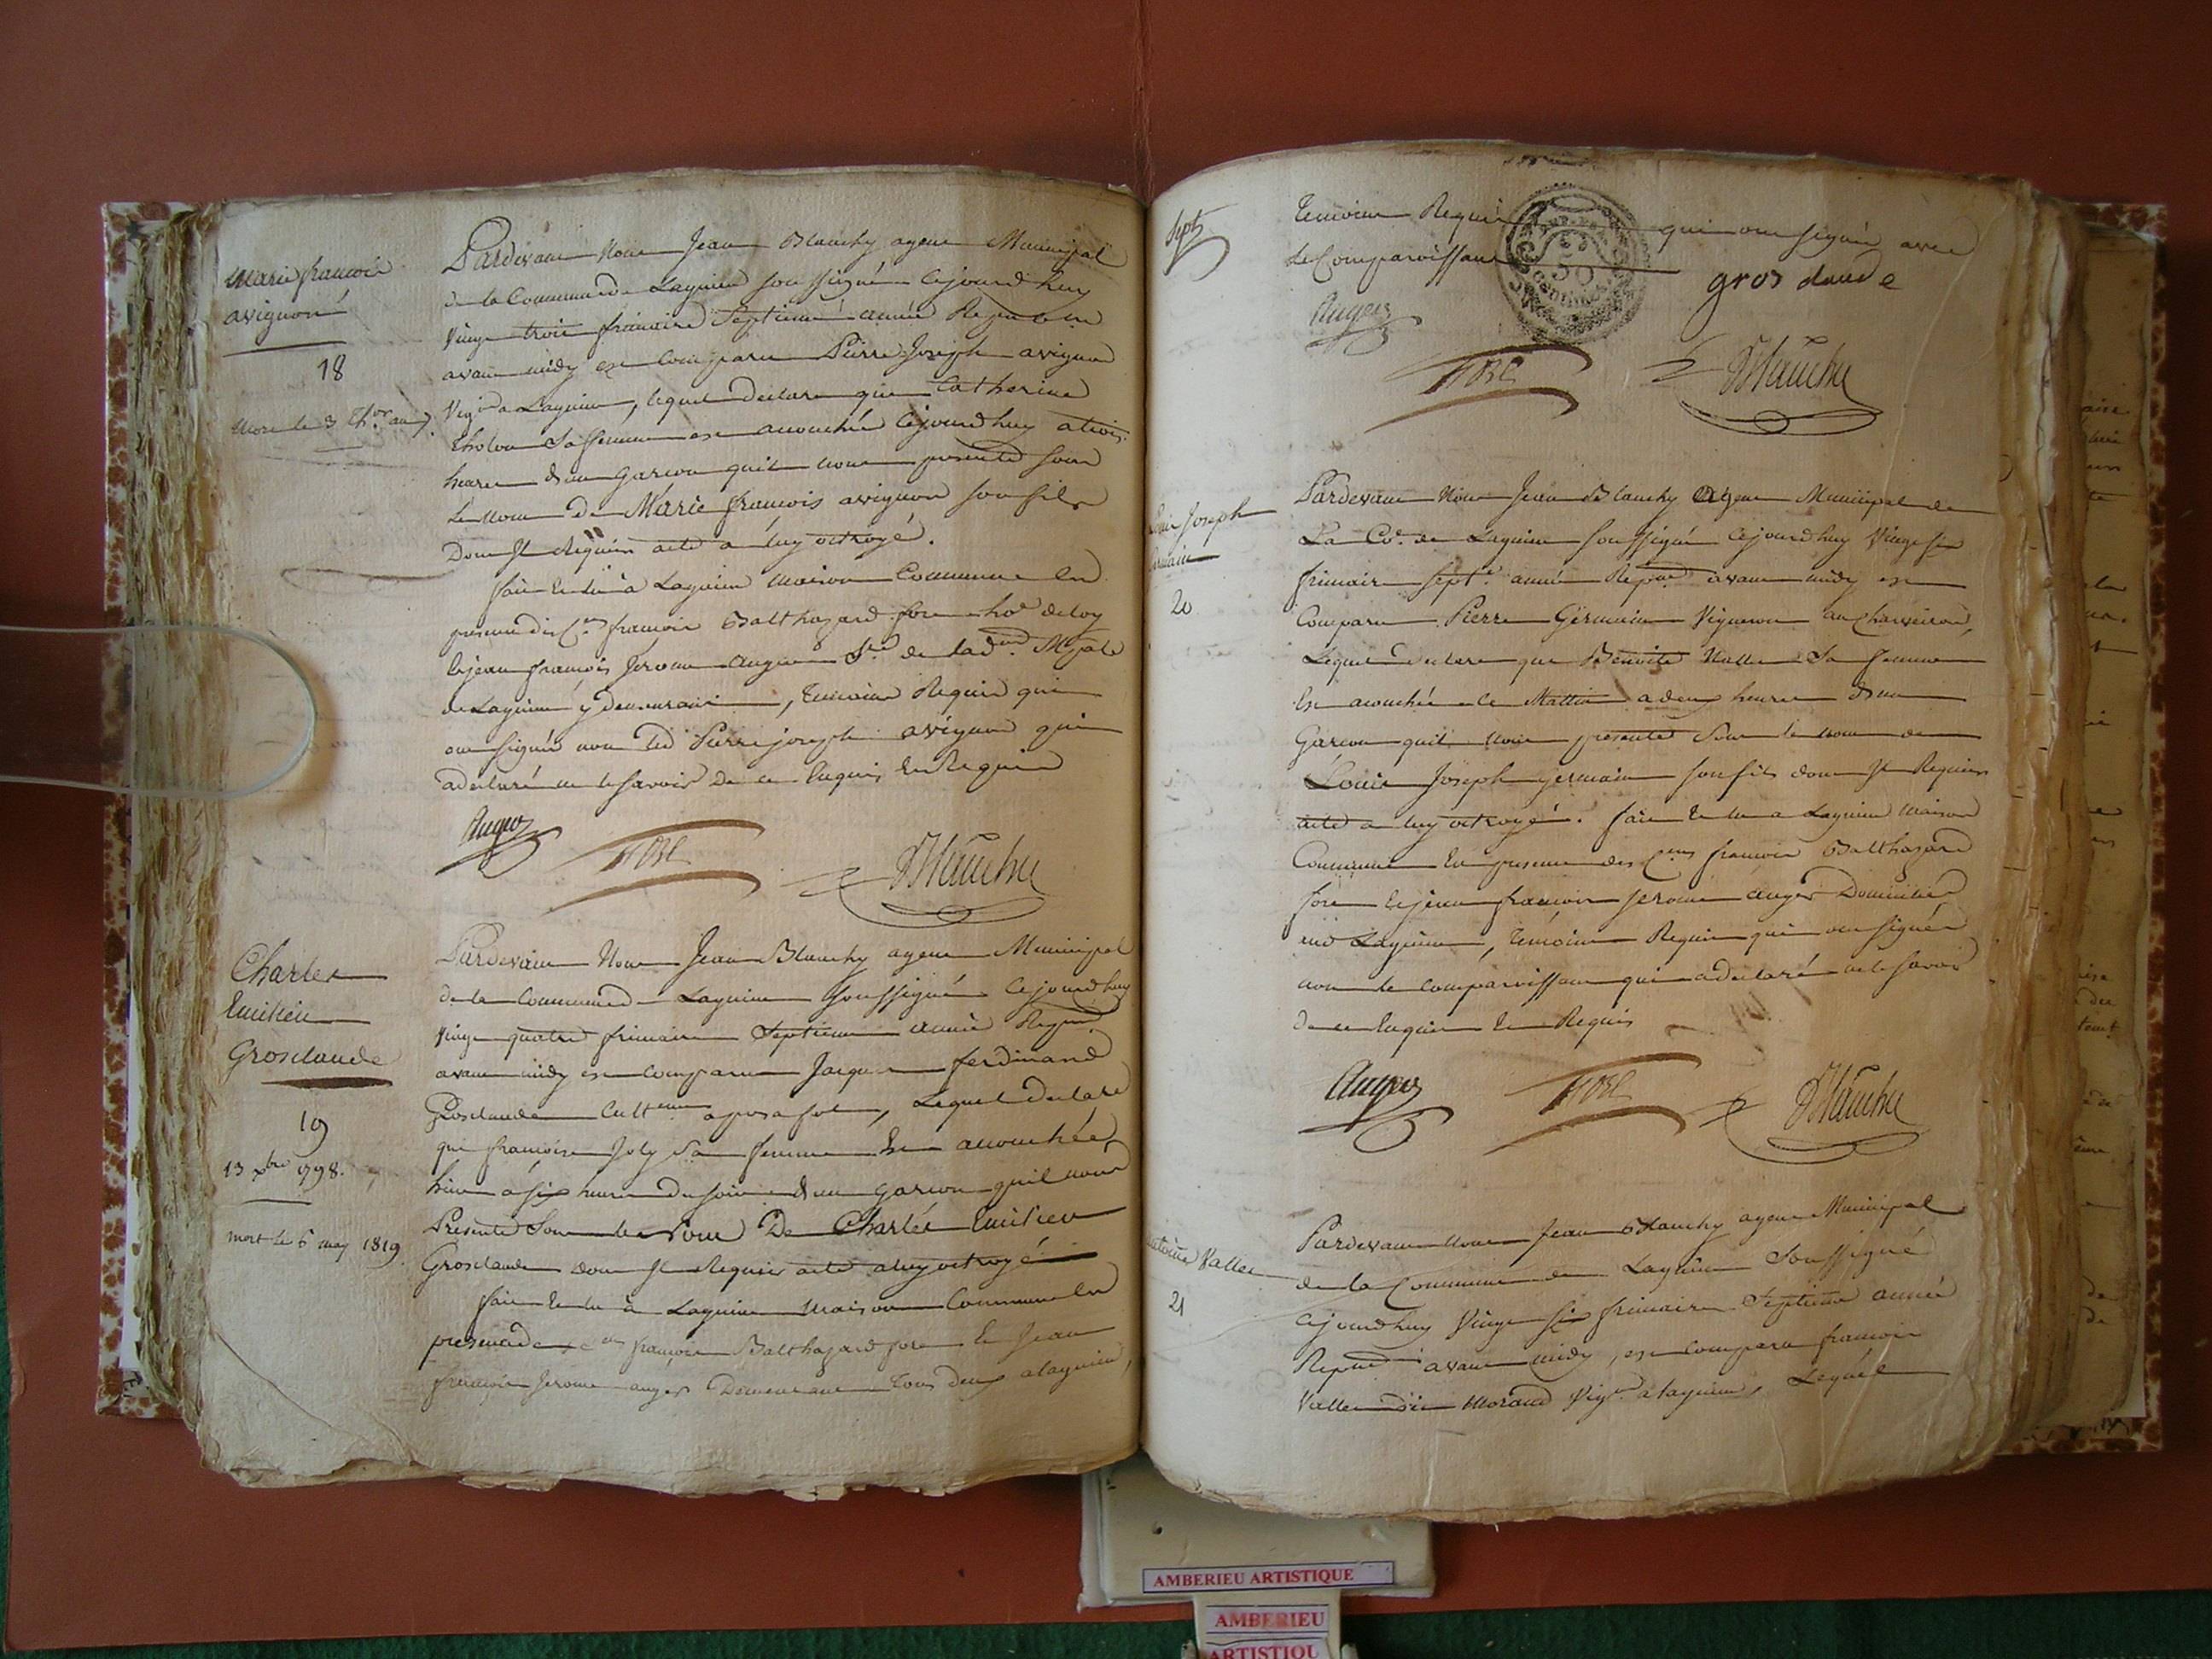 Marie francois
avignon
18
Mort le 3 th.or an 7.
Pardevant Nous Jean Blanchy agent Municipal
de la Commune de Lagnieu soussigné Cejourdhuy
Vingt trois frimaire Septieme année
avant midy est comparu Pierre Joseph avignon
Vig.on a Lagnieu, lequel declare que Catherine
sa femme est acouchée Cejourdhuy a trois
heures d'un Garcon quil nous presente sous
le nom de Marie francois avignon son fils
Dont Il Requiert acte a luy octroyé.
fait et lu à Lagnieu maison Commune en
presence des C.ens francois Balthazard fore de loy
et jean francois Jerome auger de
de Lagnieu y demeurant, temoins Requis qui
ont signés non led Pierre joseph avignon qui
a declaré ne le savoir de ce Enquis et Requis
Auger fore Blanchy
Charles
Emilien
Grosclaude
19
13 xbre 1798.
mort le 6 may 1819.
Pardevant Nous Jean Blanchy agent Municipal
de la Commune de Lagnieu soussigné Cejourdhuy
Vingt quatre frimaire Septieme année
avant midy est comparu Jacques ferdinand
Grosclaude Cult.eur a posafol, Lequel declare
que francoise Joly Sa femme Est acouchée
hier a six heures du soir d'un garcon quil nous
Presente Sous le Nom De Charles Emilien
Grosclaude dont Il Requiert acte a luy octroyé
fait et lu à Lagnieu maison Commune en
presence des C.ens francois Balthazard fore et Jean
francois Jerome auger Demeurant tous deux a lagnieu,
Sept
temoins Requis qui ont signés avec
le Comparoissant
gros claude
Auger fore Blanchy
Louis Joseph
Germain
20
Pardevant Nous Jean Blanchy Agent Municipal de
La Co.e de Lagnieu soussigné Cejourdhuy Vingt six
frimaire sept.e année Rep.ne avant midy est
Comparu Pierre Germain Vigneron au Charveiron,
Lequel declare que Benoite Vallee Sa femme
Est acouchée ce Mattin a deux heures d'un
Garcon quil nous presente Sous le nom de
Louis Joseph Germain son fils dont Il Requiert
acte a luy octroyé. fait et lu a Lagnieu maison
Commune En presence des C.ens francois Balthazard
fore et jean francois jerome auger Domiciliés
aud Lagnieu, temoins Requis qui ont signés
non le comparoissant qui a declaré ne le savoir
de ce Enquis et Requis
Auger fore Blanchy
Antoine Vallee
21
Pardevant nous Jean Blanchy agent Municipal
de la Commune de Lagnieu Soussigné
Cejourdhuy Vingt six frimaire Septieme année
Rep.ne avant midy, est comparu francois
Vallee dit Morand Vig.on a lagnieu, Lequel
AMBERIEU ARTISTIQUE
AMBERIEU
ARTISTIQU